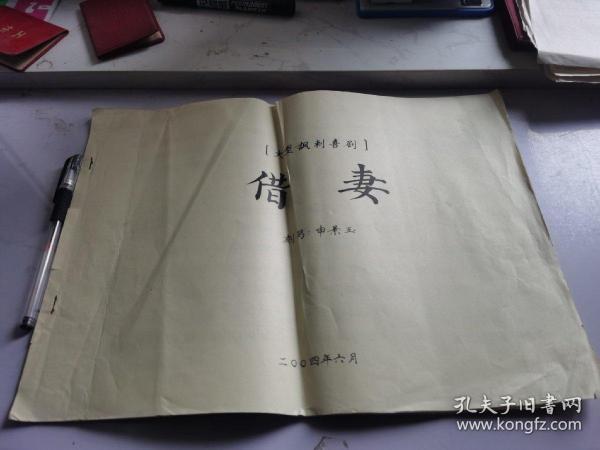 [大型讽刺喜剧]
借妻
编写:申景玉
二〇〇四年六月
孔夫子旧书网
www.kongfz.com